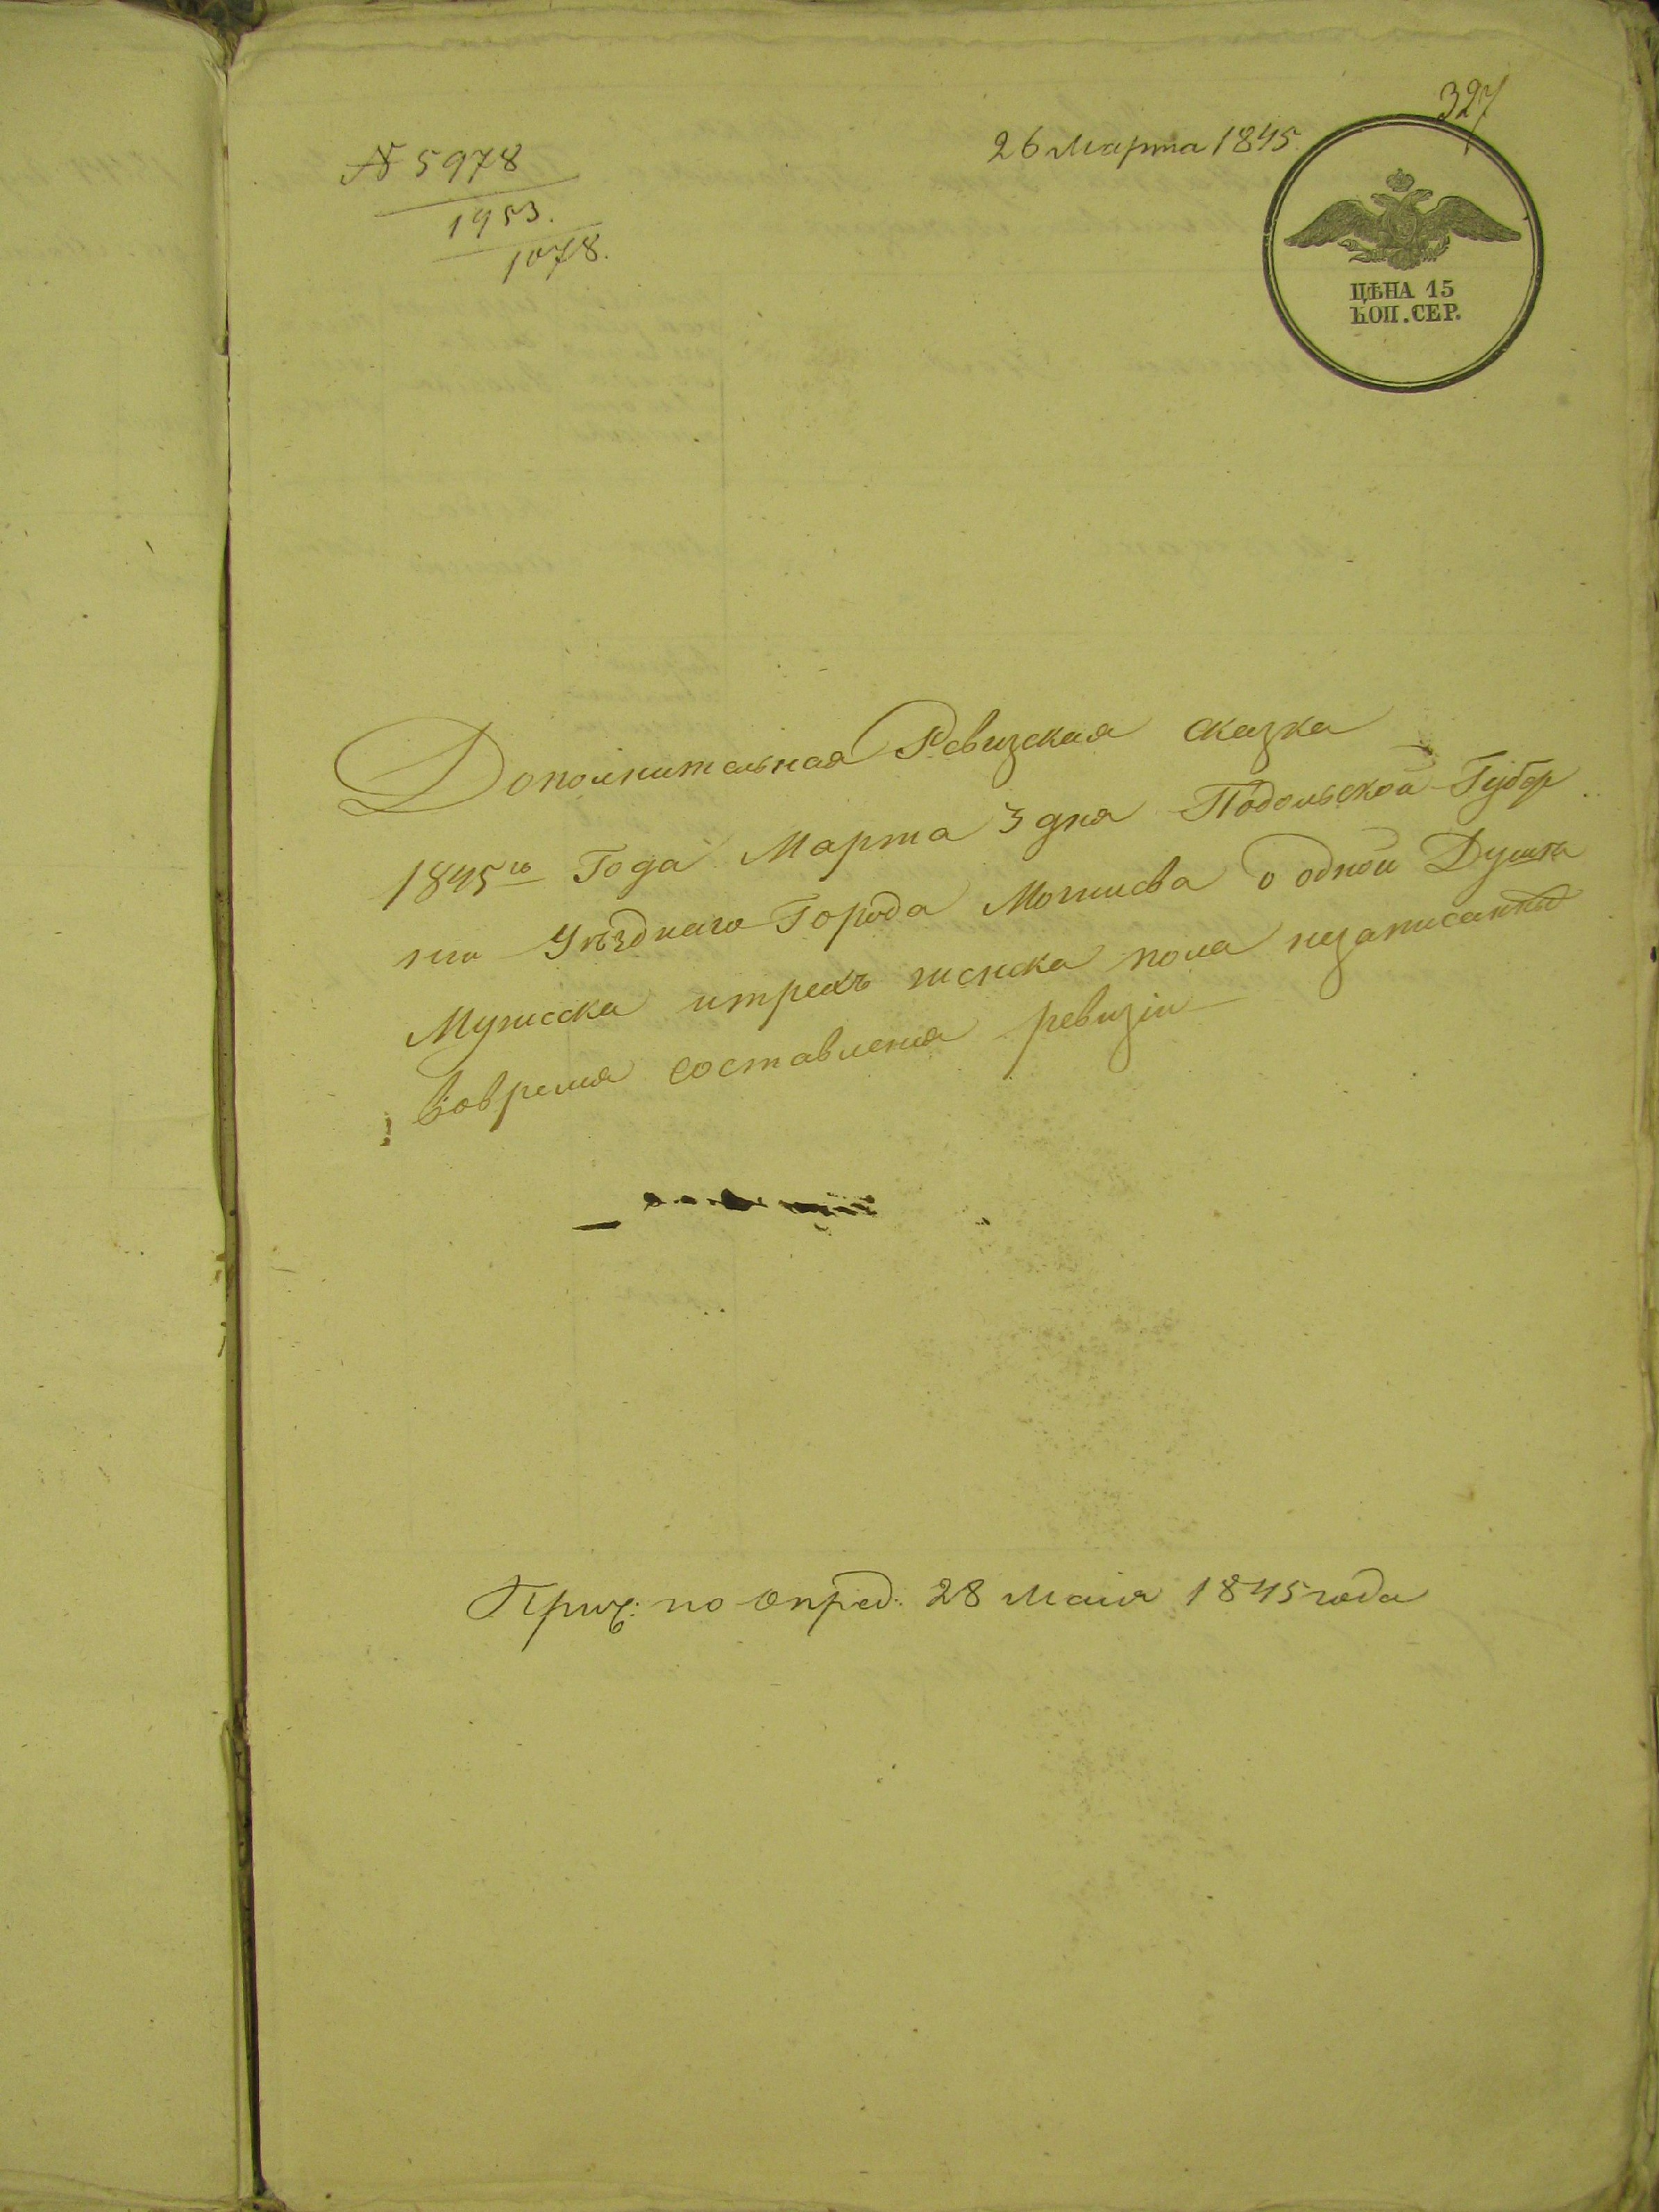 327
26 Марта 1845.
№ 5978
1953.
1078.
ЦѢНА 15
КОП. СЕР.
Дополнительная Ревизская сказка
1845го Года Марта 3 дня Подольской Губер
нии Уѣзднаго Города Могилева о одной Душѣ
Мужеска итрехъ женска пола незаписанныхъ
вовремя составления ревизіи
Прич: по опред: 28 Маия 1845 года